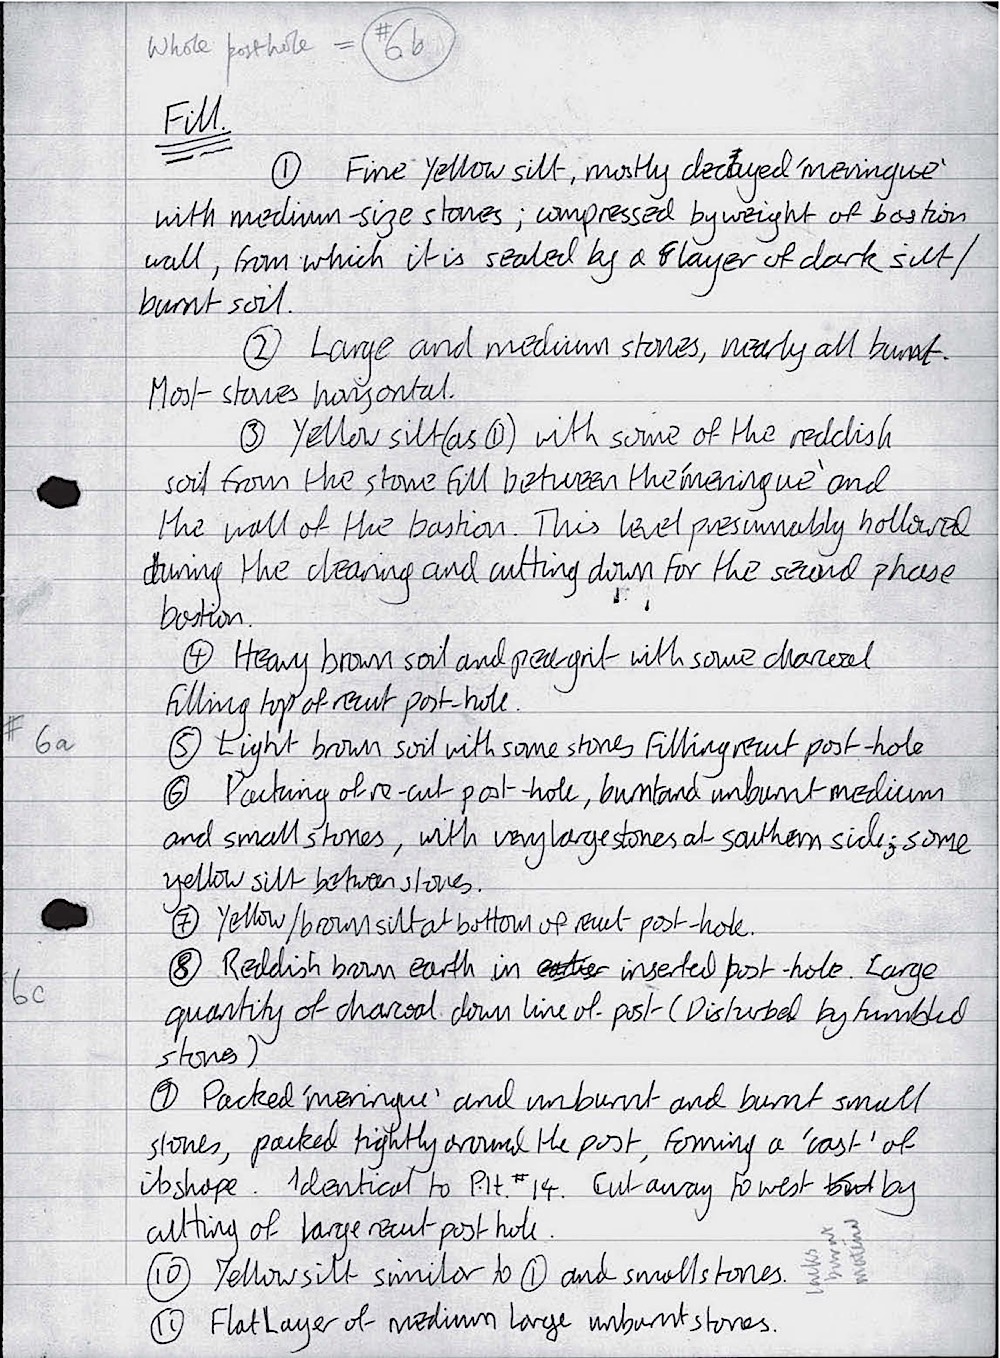 Whole posthole = #6b
Fill.
① Fine yellow silt, mostly decayed 'meringue'
with medium-size stones; compressed by weight of bastion
wall, from which it is sealed by a layer of dark silt/
burnt soil.
② Large and medium stones, nearly all burnt.
Most stones horizontal.
③ Yellow silt (as ①) with some of the reddish
soil from the stone fill between the 'meringue' and
the wall of the bastion. This level presumnably hollowed
during the clearing and cutting down for the second phase
bastion.
④ Heavy brown soil and pea-grit with some charcoal
filling top of recut post-hole.
# 6a
⑤ Light brown soil with some stones filling recut post-hole
⑥ Packing of re-cut post-hole, burnt and unburnt medium
and small stones, with very large stones at southern side; some
yellow silt between stones.
⑦ Yellow/brown silt at bottom of recut post-hole.
6c
⑧ Reddish brown earth in earlier inserted post-hole. Large
quantity of charcoal down line of post (Disturbed by tumbled
stones)
⑨ Packed 'meringue' and unburnt and burnt small
stones, packed tightly around the post, forming a 'cast' of
its shape. Identical to Pit. #14. Cut away to west by
cutting of large recut post hole.
⑩ Yellow silt similar to ① and small stones.
lacks
burnt
material
⑪ Flat Layer of medium large unburnt stones.